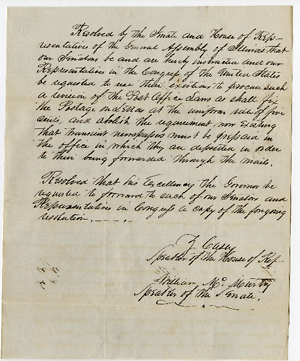 Resolved by the Senate and House of Rep-
resentatives of the General Assembly of Illinois that
our Senators be and are hereby instructed and our
Representatives in the Congress of the United States
be requested to use their exertions to procure such
a revision of the Post Office Laws as shall fix
the Postage on Letters at the uniform rate of five
cents, and abolish the requirement now existing
that transient newspapers must be prepaid in
the office in which they are deposited in order
to their being forwarded through the mails.
Resolved that his Excellency the Governor be
requested to forward to each of our Senators and
Representatives in Congress a copy of the foregoing
resolution.
Z. Casey
Speaker of the House of Rep
William McMurtry
Speaker of the Senate.